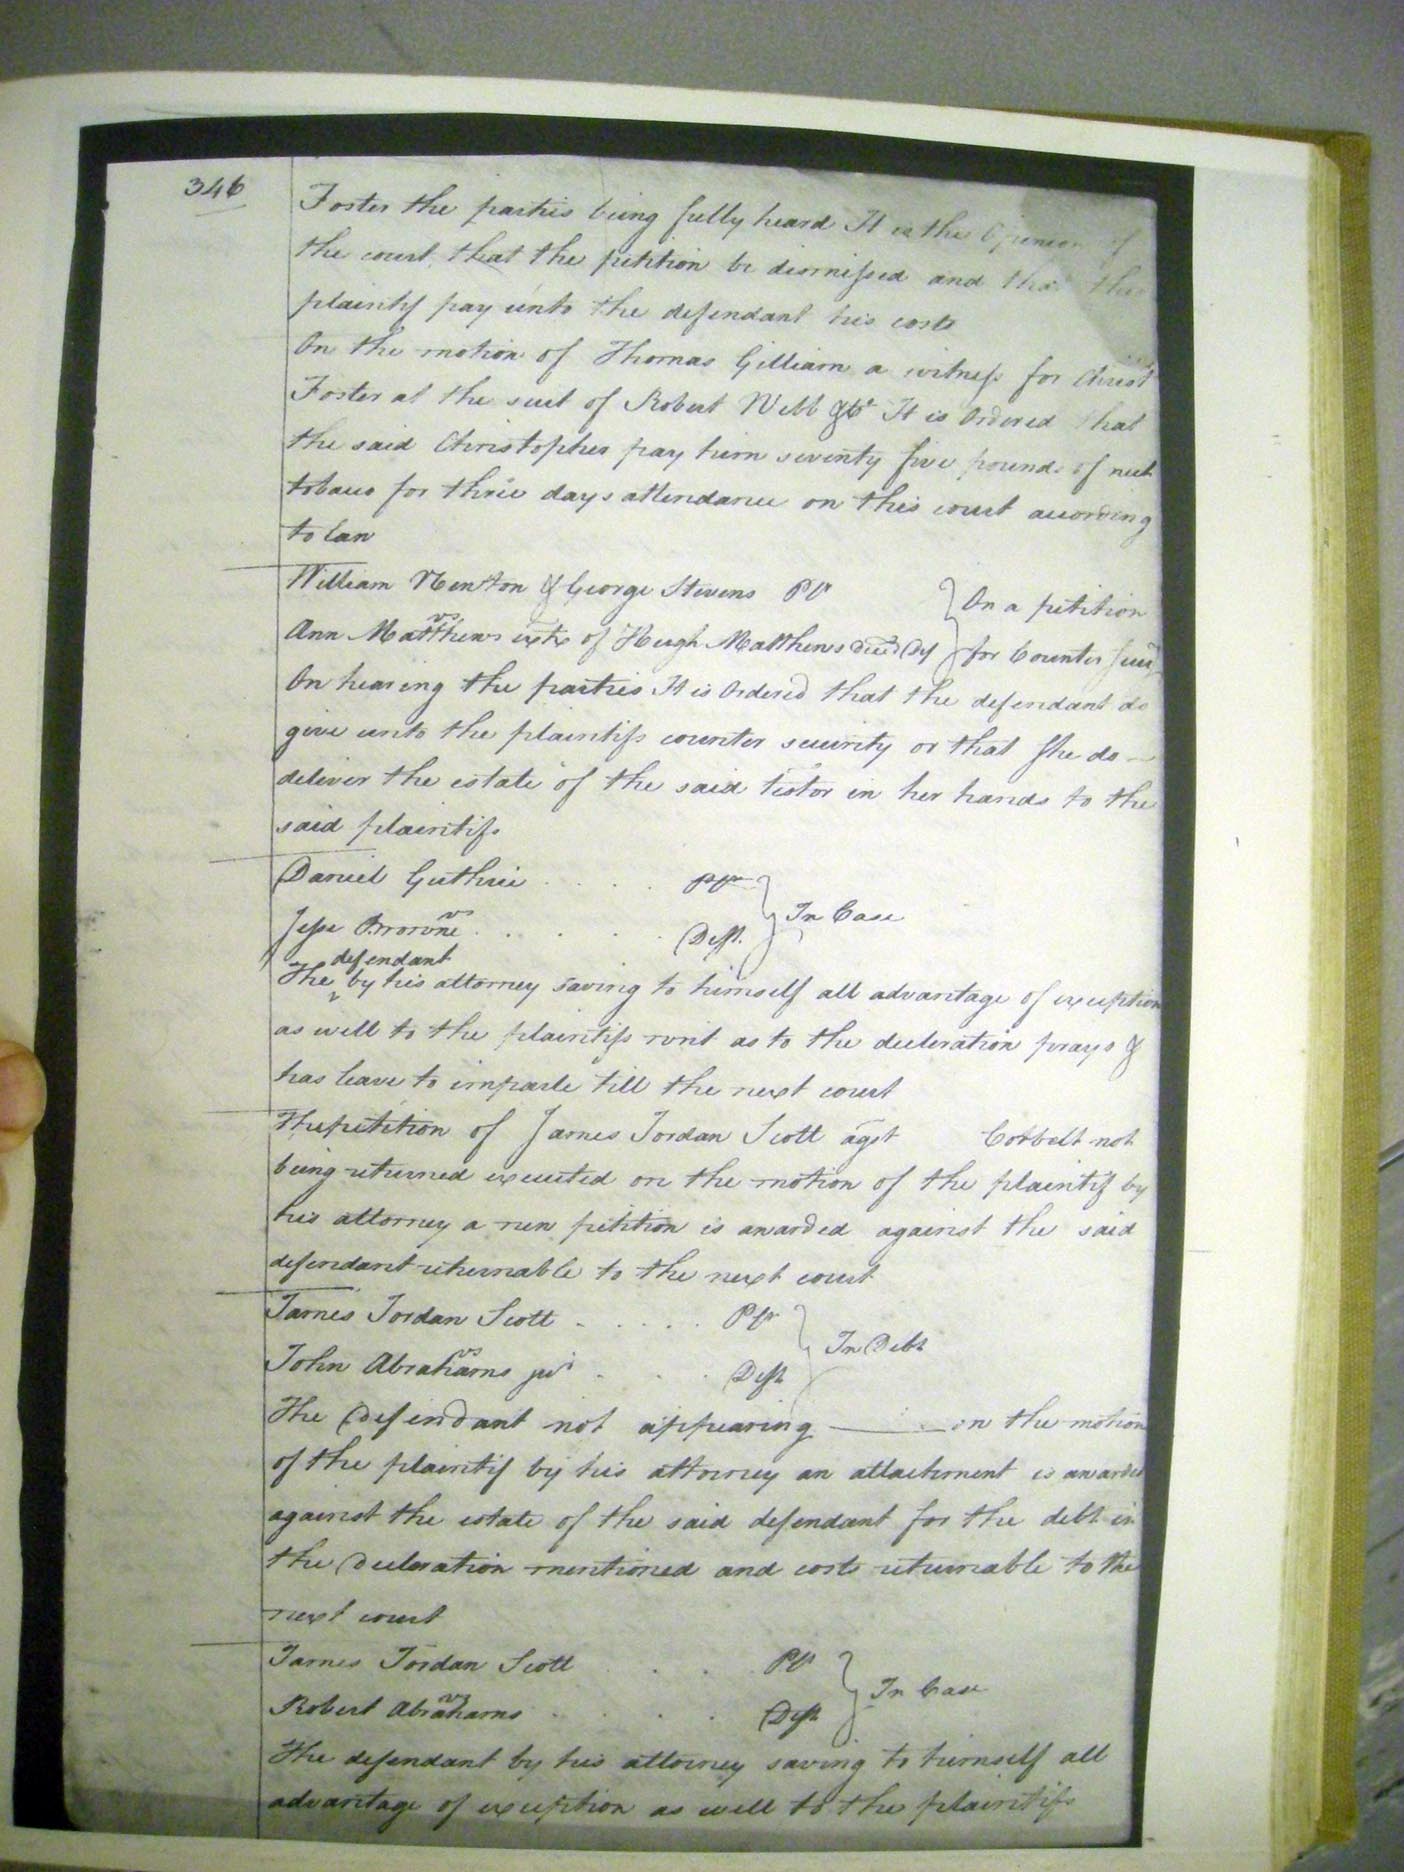 346
Foster the parties being fully heard It is the Opinion of
the court that the petition be dismissed and that the
plaintif pay unto the defendant his costs
On the motion of Thomas Gilliam a witness for Christ
Foster at the suit of Robert Webb It is Ordered that
the said Christopher pay him seventy five pounds of nett
tobacco for three days attendance on this court according
to Law
William Newton & George Stevens Plt } On a petition
vs
Ann Matthews extx of Hugh Matthews decd Def } for Counter
On hearing the parties It is Ordered that the defendant do
give unto the plaintifs counter security or that she do
deliver the estate of the said testor in her hands to the
said plaintifs
Daniel Guthrie . . . . Plt } In Case
vs
Jesse Browne . . . . Deft
defendant
The ^ by his attorney saving to himself all advantage of exception
as well to the plaintifs writ as to the decleration prays &
has leave to imparle till the next court
The petition of James Jordan Scott agst Corbett not
being returned executed on the motion of the plaintif by
his attorney a new petition is awarded against the said
defendant returnable to the next court
James Jordan Scott . . . . . Plt } In Debt
vs
John Abrahams junr . . . Deft
The Defendant not appearing ——— on the motion
of the plaintif by his attorney an attachment is awarded
against the estate of the said defendant for the debt in
the Decleration mentioned and costs returneable to the
next court
James Jordan Scott . . . Plt } In Case
vs
Robert Abrahams . . . . Deft
The defendant by his attorney saving to himself all
advantage of exception as well to the plaintifs